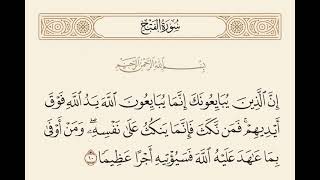 سُورَةُ الفَتْحِ
بِسْمِ اللَّهِ الرَّحْمَٰنِ الرَّحِيمِ
إِنَّ الَّذِينَ يُبَايِعُونَكَ إِنَّمَا يُبَايِعُونَ اللَّهَ يَدُ اللَّهِ فَوْقَ
أَيْدِيهِمْ ۚ فَمَن نَّكَثَ فَإِنَّمَا يَنكُثُ عَلَىٰ نَفْسِهِ ۖ وَمَنْ أَوْفَىٰ
بِمَا عَاهَدَ عَلَيْهُ اللَّهَ فَسَيُؤْتِيهِ أَجْرًا عَظِيمًا ١٠